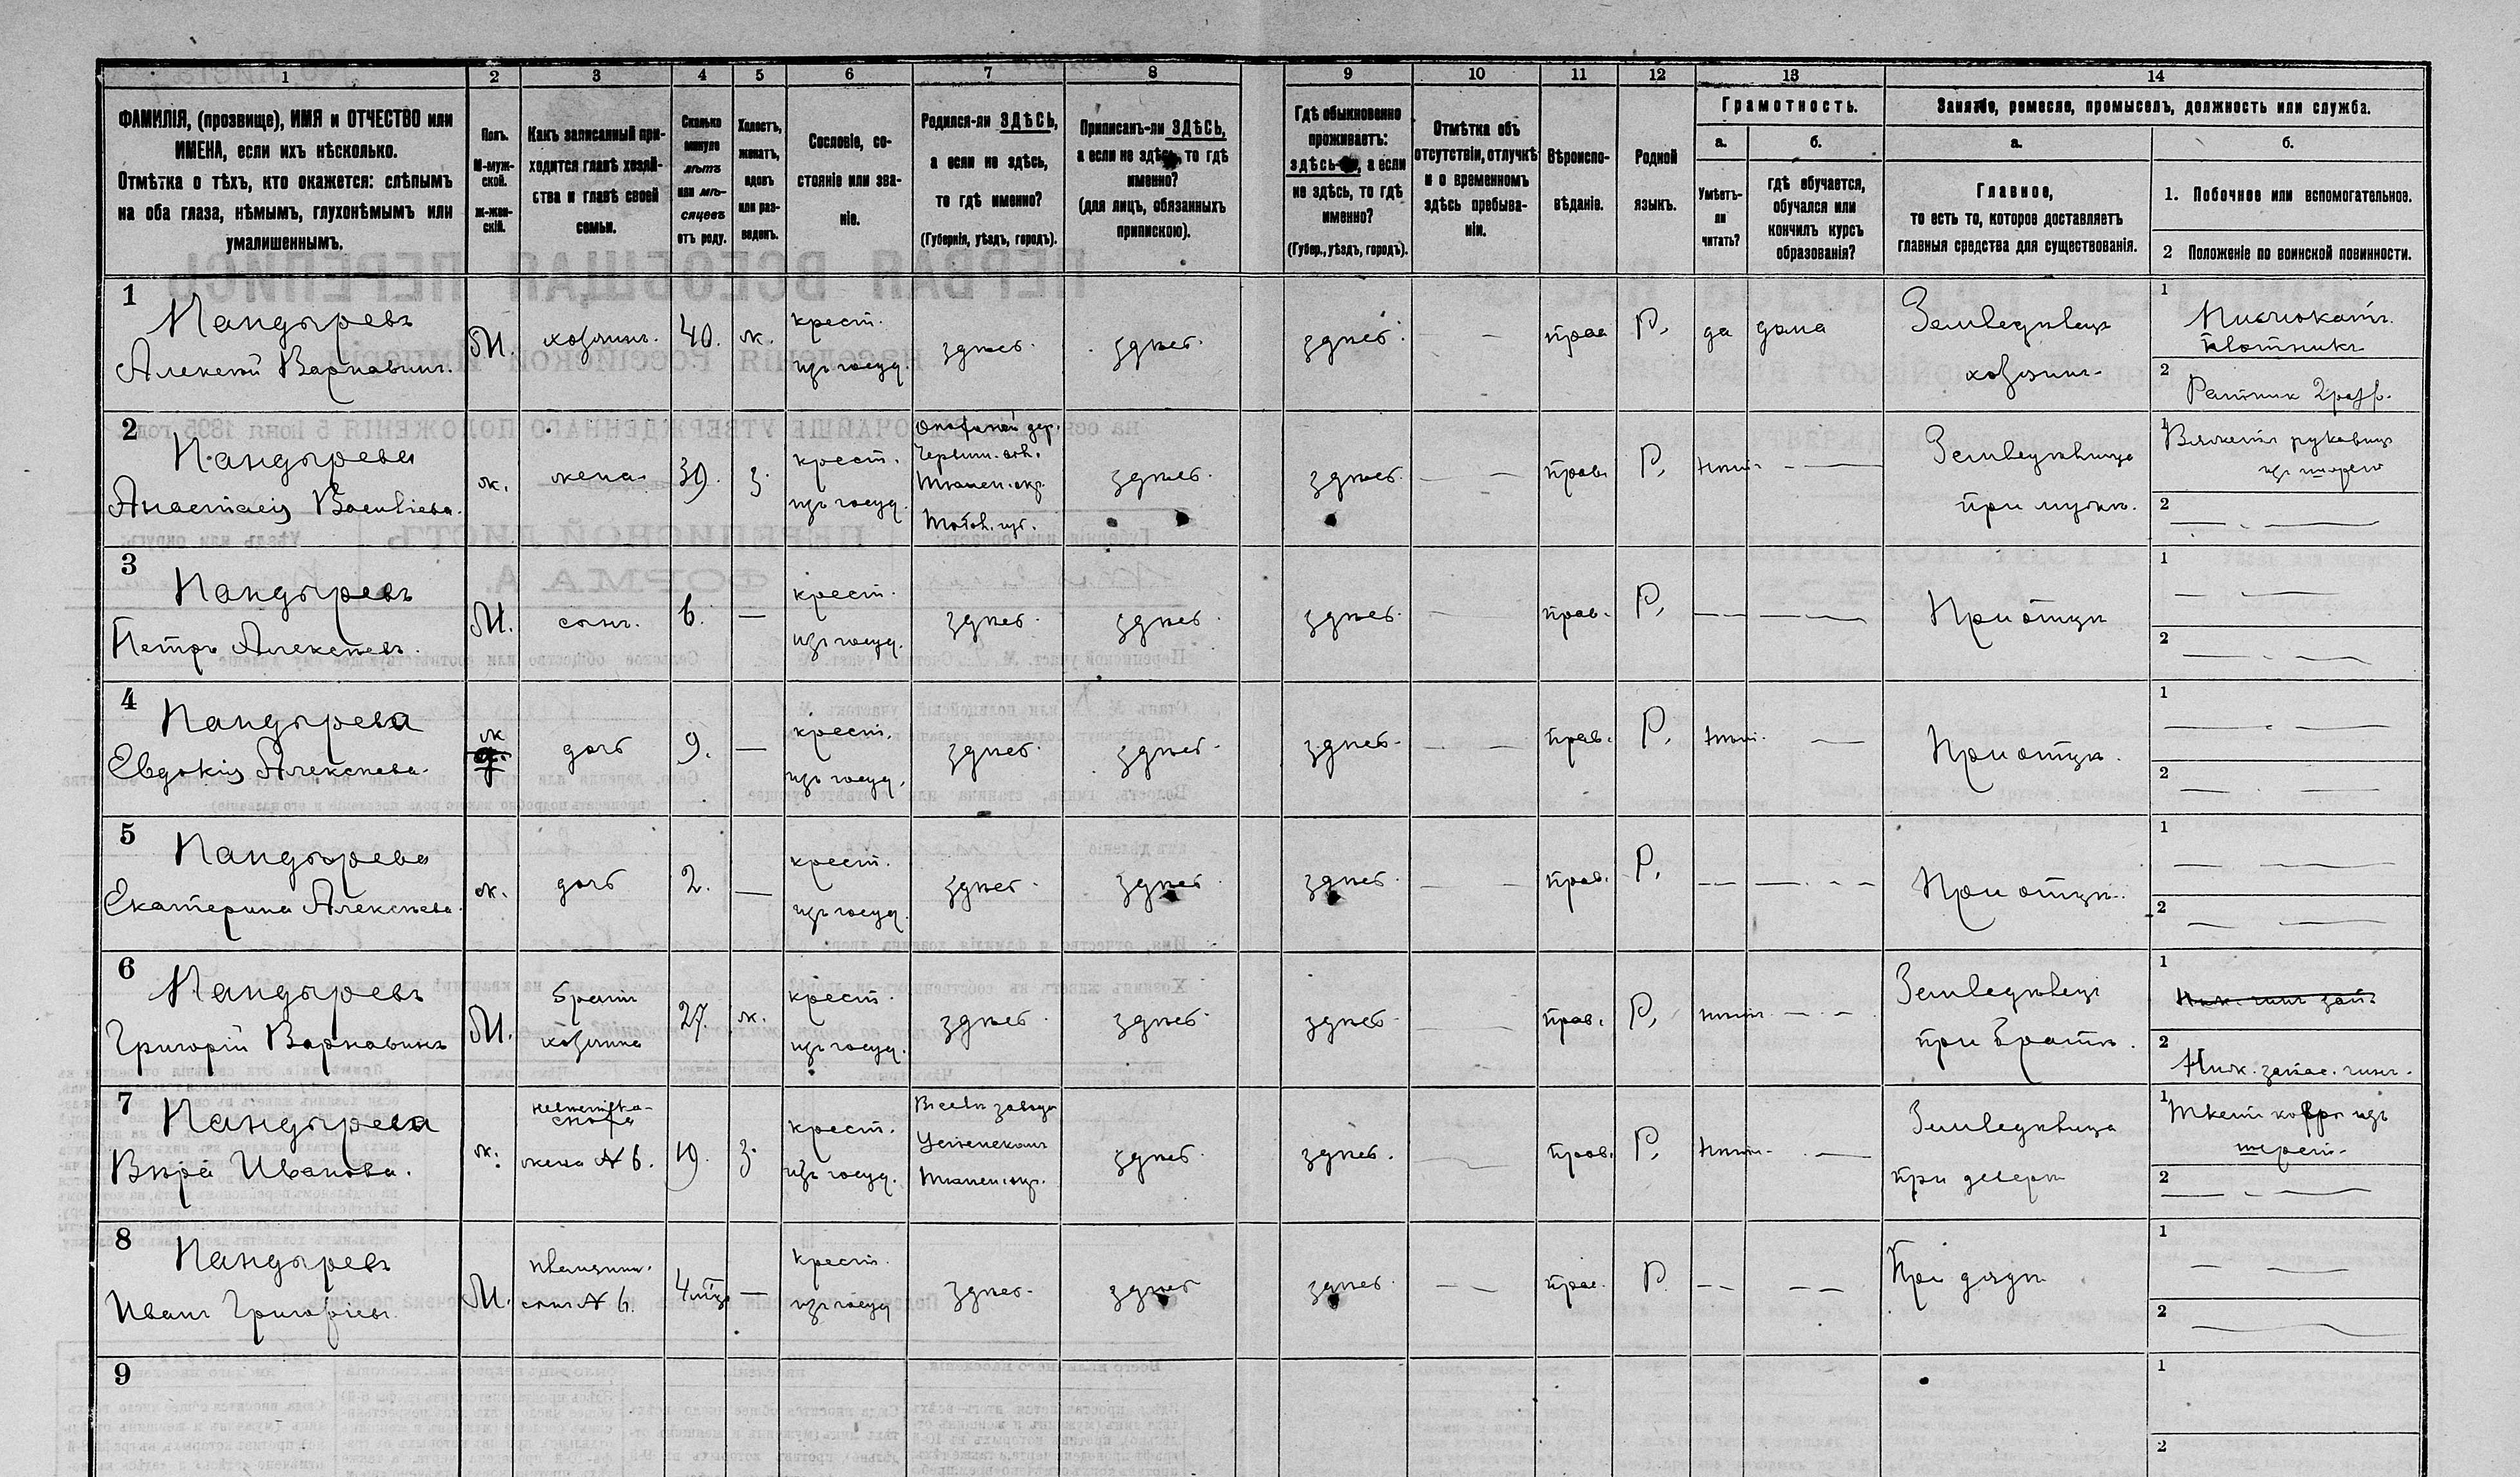 1 2 3 4 5 6 7 8 9 10 11 12 13 14
ФАМИЛІЯ, (прозвище), ИМЯ и ОТЧЕСТВО или
ИМЕНА, если ихъ нѣсколько.
Отмѣтка о тѣхъ, кто окажется: слѣпымъ
на оба глаза, нѣмымъ, глухонѣмымъ или
умалишеннымъ.
Полъ.
М-муж-
ской.
Ж-жен-
скій.
Какъ записанный при-
ходится главѣ хозяй-
ства и главѣ своей
семьи.
Сколько
минуло
лѣтъ
или мѣ-
сяцевъ
отъ роду.
Холостъ,
женатъ,
вдовъ
или раз-
веденъ.
Сословіе, со-
стояніе или зва-
ніе.
Родился-ли ЗДѢСЬ,
а если не здѣсь,
то гдѣ именно?
(Губернія, уѣздъ, городъ).
Приписанъ-ли ЗДѢСЬ,
а если не здѣсь, то гдѣ
именно?
(для лицъ, обязанныхъ
припискою).
Гдѣ обыкновенно
проживаетъ:
здѣсь-ли, а если
не здѣсь, то гдѣ
именно?
(Губер., уѣздъ, городъ).
Отмѣтка объ
отсутствіи, отлучкѣ
и о временномъ
здѣсь пребыва-
ніи.
Вѣроиспо-
вѣданіе.
Родной
языкъ.
Грамотность.
а.
Умѣетъ-
ли
читать?
б.
гдѣ обучается,
обучался или
кончилъ курсъ
образованія?
Занятіе, ремесло, промыселъ, должность или служба.
а.
Главное,
то есть то, которое доставляетъ
главныя средства для существованія.
б.
1. Побочное или вспомогательное.
2 Положеніе по воинской повинности.
1
Пандыревъ
Алексѣй Варнавинъ.
М.
хозяинъ.
40.
ж.
крест.
изъ госуд.
здѣсь.
здѣсь.
здѣсь.
— —
прав
Р.
да
дома
Земледѣлецъ
хозяинъ
1
плотникъ
2
Ратник 2 разр.
2
Пандырева
Анастасія Васильева.
ж.
жена
39.
з.
крест.
изъ госуд.
дер.
Тюмен. окр.
Тобол. губ.
здѣсь.
здѣсь.
— —
прав.
Р.
нѣтъ
— —
Земледѣлица
при мужѣ.
1
Вяжетъ рукавицы
изъ шерсти
2
— . —
3
Пандыревъ
Петръ Алексѣевъ.
М.
сынъ.
6.
—
крест.
изъ госуд.
здѣсь.
здѣсь.
здѣсь.
—
прав.
Р.
— —
— —
При отцѣ
1
— —
2
— . —
4
Пандырева
Евдокія Алексѣева.
ж
дочь
9.
—
крест.
изъ госуд.
здѣсь.
здѣсь.
здѣсь.
— —
прав.
Р.
нѣтъ.
—
При отцѣ.
1
— . —
2
— . —
5
Пандырева
Екатерина Алексѣева.
ж.
дочь
2.
—
крест.
изъ госуд.
здѣсь.
здѣсь
здѣсь.
— —
прав.
Р.
— —
— - -
При отцѣ.
1
— —
2
— —
6
Пандыревъ
Григорій Варнавинъ
М.
братъ
хозяина
27.
ж.
крест.
изъ госуд.
здѣсь.
здѣсь.
здѣсь.
— —
прав.
Р.
нѣтъ
— -
Земледѣлецъ
при братѣ.
1
Ниж. чинъ зап.
2
Ниж. запас. чинъ.
7
Пандырева
Вѣра Иванова.
ж.
невѣстка
сноха
жена № 6.
19.
з.
крест.
изъ госуд.
Въ селѣ завода
Успенскомъ
Тюмен. окр.
здѣсь.
здѣсь.
—
прав.
Р.
нѣтъ.
—
Земледѣлица
при деверѣ
1
Ткетъ ковры изъ
шерсти.
2
— . —
8
Пандыревъ
Иванъ Григорьевъ.
М.
племянн.
сынъ № 6.
4 мѣс
—
крест.
изъ госуд
здѣсь.
здѣсь
здѣсь.
— —
прав.
Р
— —
— —
При дядѣ
1
— —
2
—
9
1
2